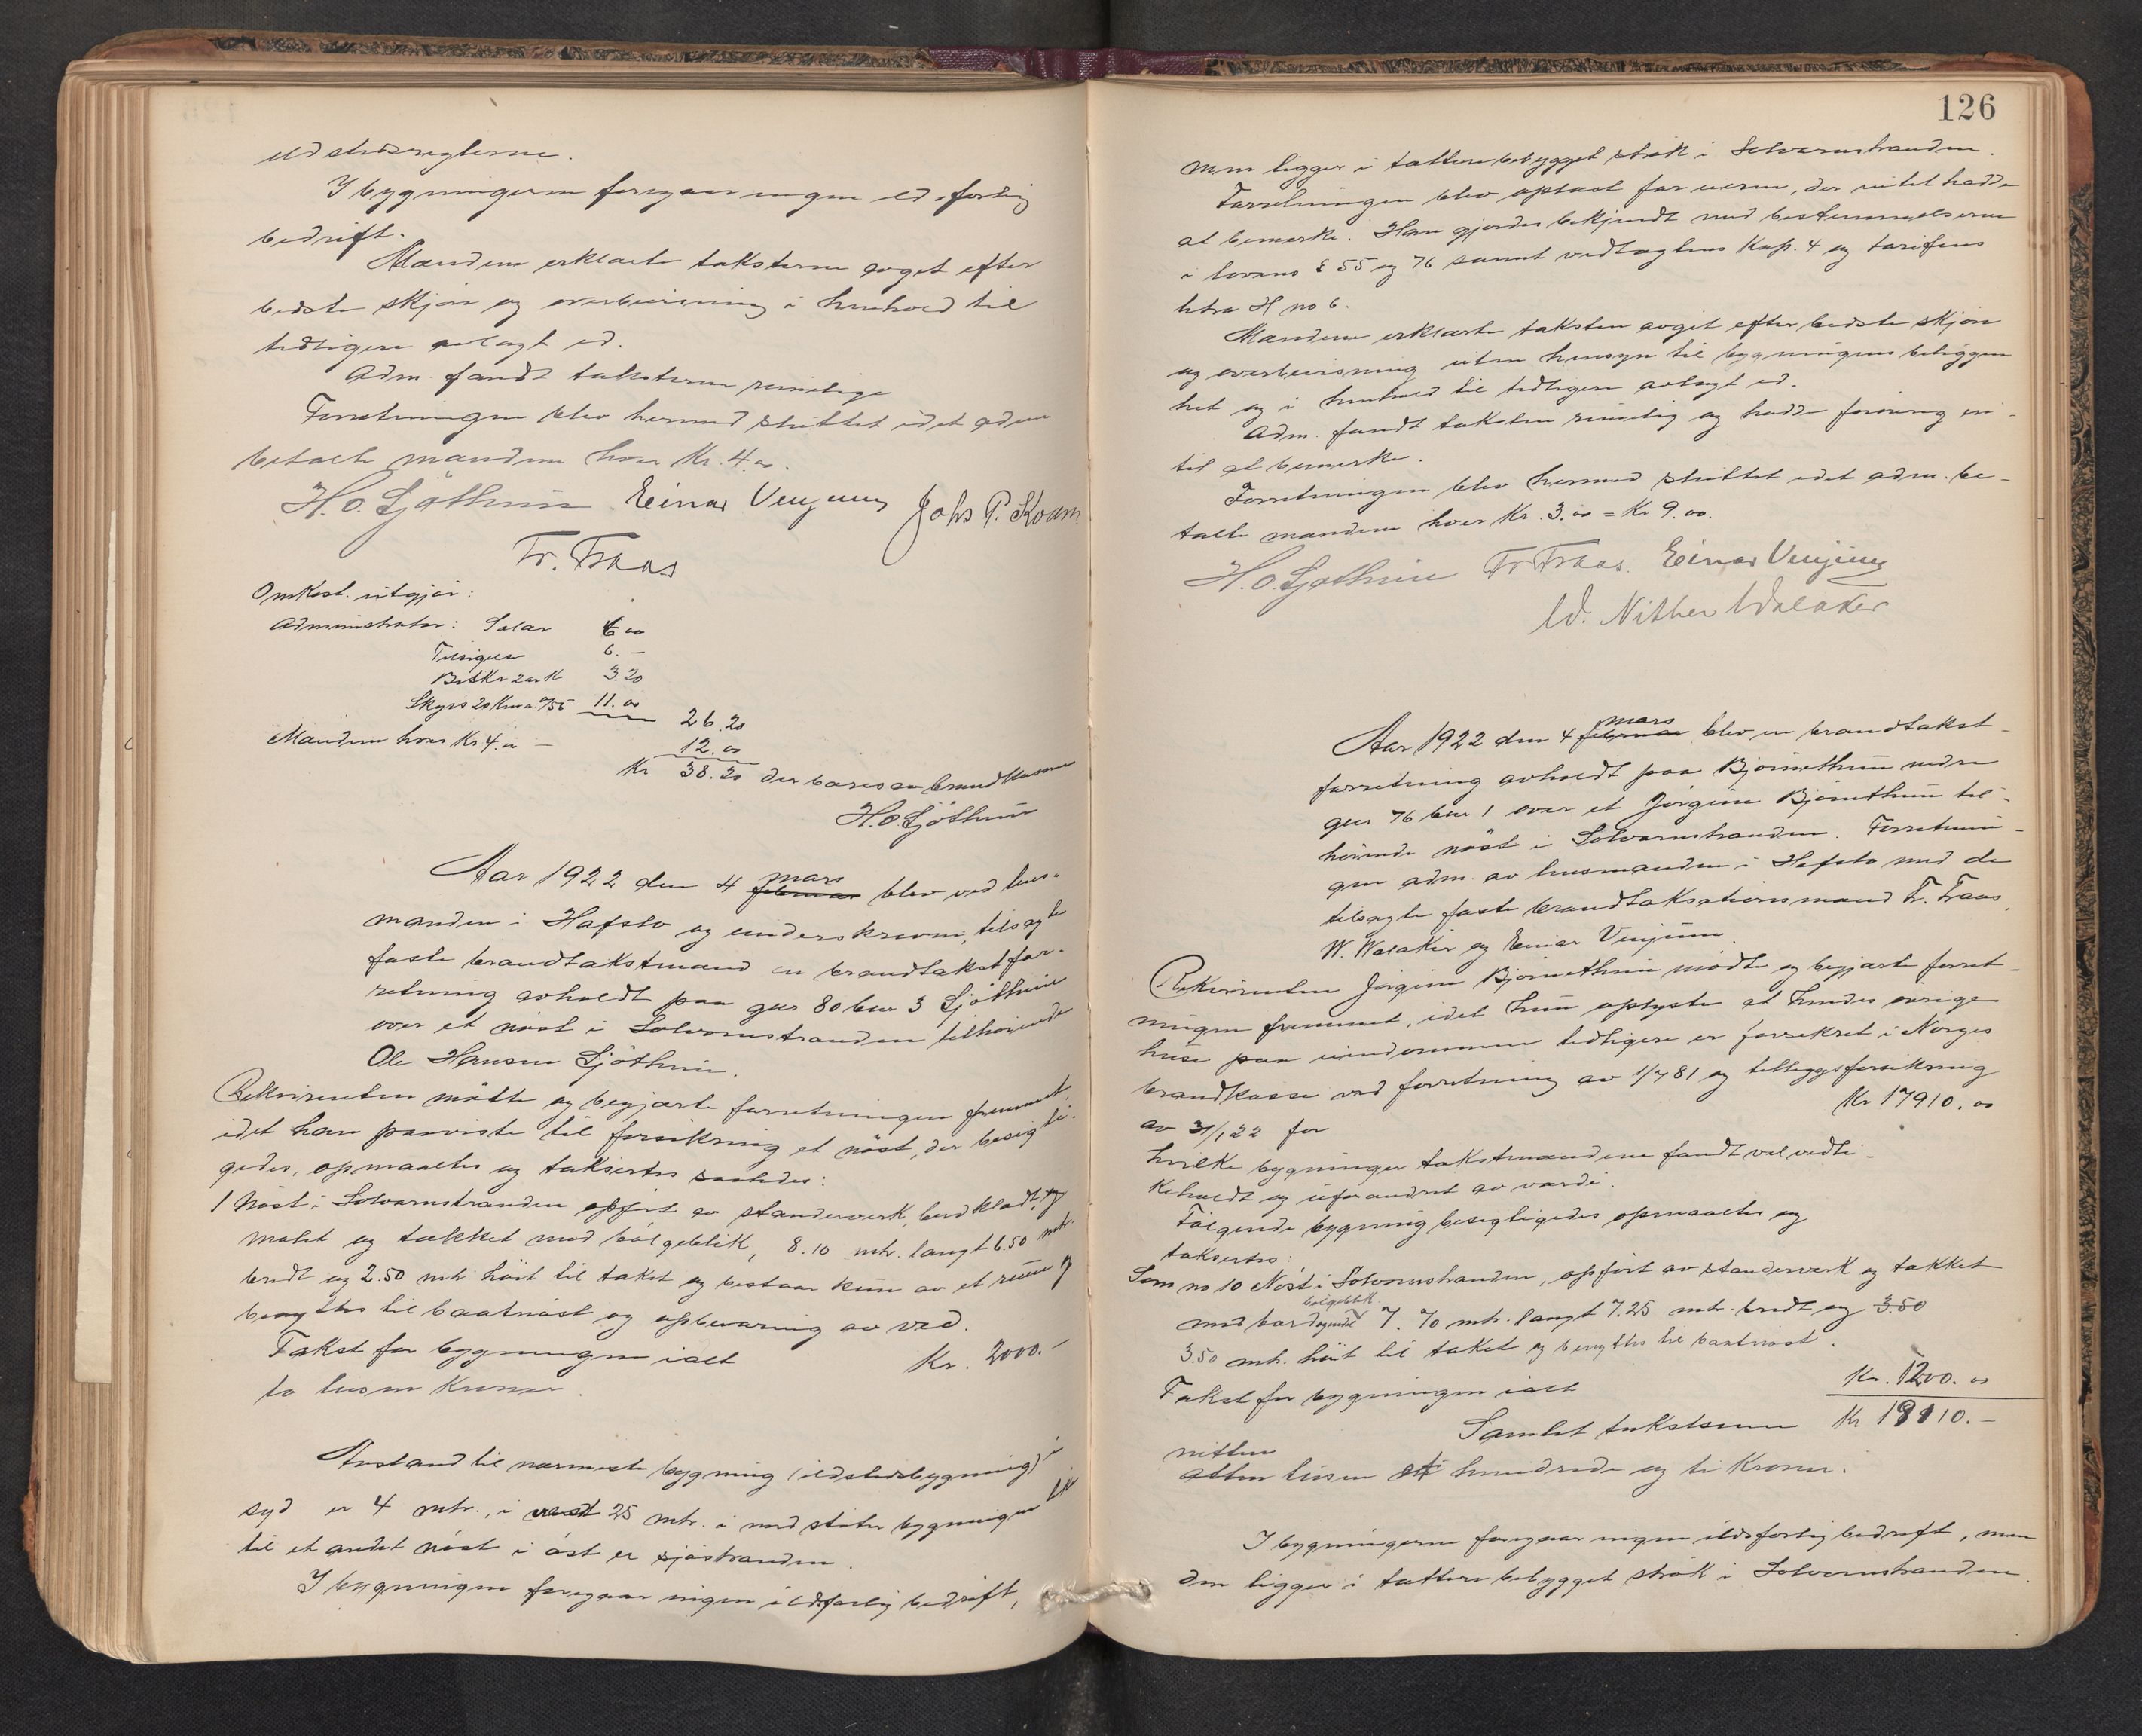 ildstedsreglerne.
I bygningerne foregaar ingen ildsfarlig
bedrift.
Mændene erklærte taksterne avget efter
bedste skjøn og overbevisning i henhold til
tidligere avlagt ed.
Adm. fandt taksterne rimelige
Forretningen blev hermed sluttet idet adm
betalte mændene hver Kr. 4.00.
H. O. Sjøthun Einar Venjum Johs P. Kvam
Fr. Fraas
Omkost. utgjør:
Administrator: Salær 6 00
Tilsigelse 6. –
Beskr 2 ark 3.20
Skyss 20 Km a 0/55 11.00
26.20
Mændene hver Kr 4.00 – 12.00
Kr 38.20 der bæres av brandkassen
H.O. Sjøthun
Aar 1922 den 4 mars februar blev ved lens-
manden i Hafslo og underskrevne, tilsagte
faste brandtakstmænd en brandtakstfor-
retning avholdt paa gno 80 bno 3 Sjøthun
over et nøst i Solvornstranden tilhørende
Ole Hansen Sjøthun.
Rekvirenten møtte og begjærte forretningen fremmet,
idet han paaviste til forsikring et nøst, der besigti-
gedes, opmaaltes og taksertes saaledes:
1 Nøst i Solvornstranden opført av standerverk, bordklædt, og
malt og tækket med bølgeblik, 8.10 mtr. langt 6.50 mtr.
bredt og 2.50 mtr høit til taket og bestaar kun av et rum og
benyttes til baatnøst og opbevaring av ved.
Takst for bygningen ialt Kr. 2000.–
to tusen Kroner.
Avstand til nærmeste bygning (ildstedsbygning) i
syd er 4 mtr., i vest 25 mtr. i nord støter bygningen like
til et andet nøst i øst er sjøstranden.
I bygningen foregaar ingen ildsfarlig bedrift,
126
men ligger i tættere bebygget strøk i Solvornstranden.
Forretningen blev oplæst for eieren, der intet hadde
at bemerke. Han gjordes bekjendt med bestemmelserne
i lovens § 55 og 76 samt vedtægtens Kap. 4 og tarifens
litra H no 6.
Mændene erklærte taksten avgit efter bedste skjøn
og overbevisning uten hensyn til bygningens beliggen
het og i henhold til tidligere avlagt ed.
Adm. fandt taksten rimelig og hadde forøvrig in-
tet at bemerke.
Forretningen blev hermed sluttet idet adm. be-
talte mændene hver Kr. 3.00 = Kr 9.00.
H.O. Sjøthun Fr Fraas. Einar Venjum
W. Nitter Walaker
Aar 1922 den 4 mars februar blev en brandtakst-
forretning avholdt paa Bjørnethun nedre
gno 76 bno 1 over et Jørgine Bjørnethun til-
hørende nøst i Solvornstranden. Forretnin-
gen adm. av lensmanden i Hafslo med de
tilsagte faste brandtaksationsmænd Fr. Fraas,
W. Walaker og Einar Venjum.
Rekvirenten Jørgine Bjørnethun mødte og begjærte forret-
ningen fremmet, idet hun oplyste at hendes øvrige
huse paa eiendommen tidligere er forsikret i Norges
brandkasse ved forretning av 1/7 81 og tillægsforsikring
av 31/1 22 for Kr 17910.00
hvilke bygninger takstmændene fandt vel vedli-
keholdt og uforandret av værdi.
Følgende bygning besigtigedes opmaaltes og
taksertes:
Som no 10 Nøst i Solvornstranden, opført av standerverk og tækket
bølgeblik.
med bord 7.70 mtr. langt 7.25 mtr. bredt og 3.50
3.50 mtr. høit til taket og benyttes til baatnøst.
Takst for bygningen ialt Kr. 1200.00
Samlet takstsum Kr 19110.–
nitten
atten tusen et hundrede og ti Kroner.
I bygningerne foregaar ingen ildsfarlig bedrift, men
den ligger i tættere bebygget strøk i Solvornstranden.